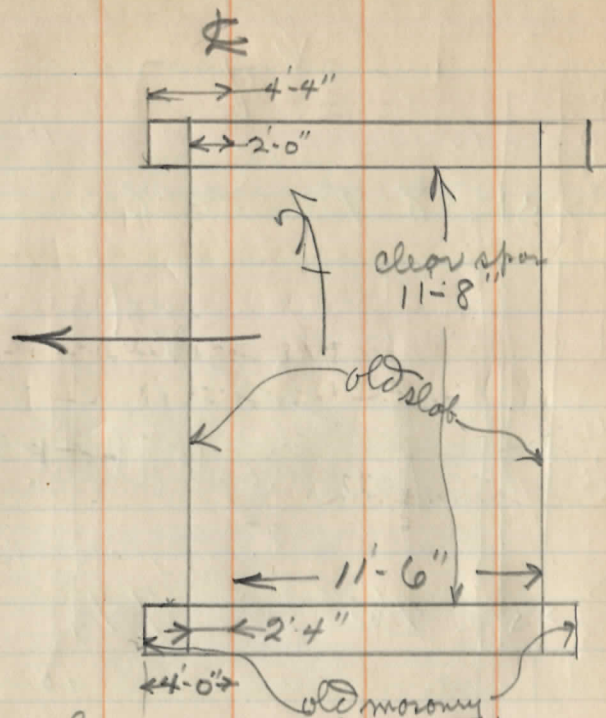 ℄
4'-4"
2'-0"
clear span
11-8"
old slab
11'-6"
2'4"
4'-0"
old masonry